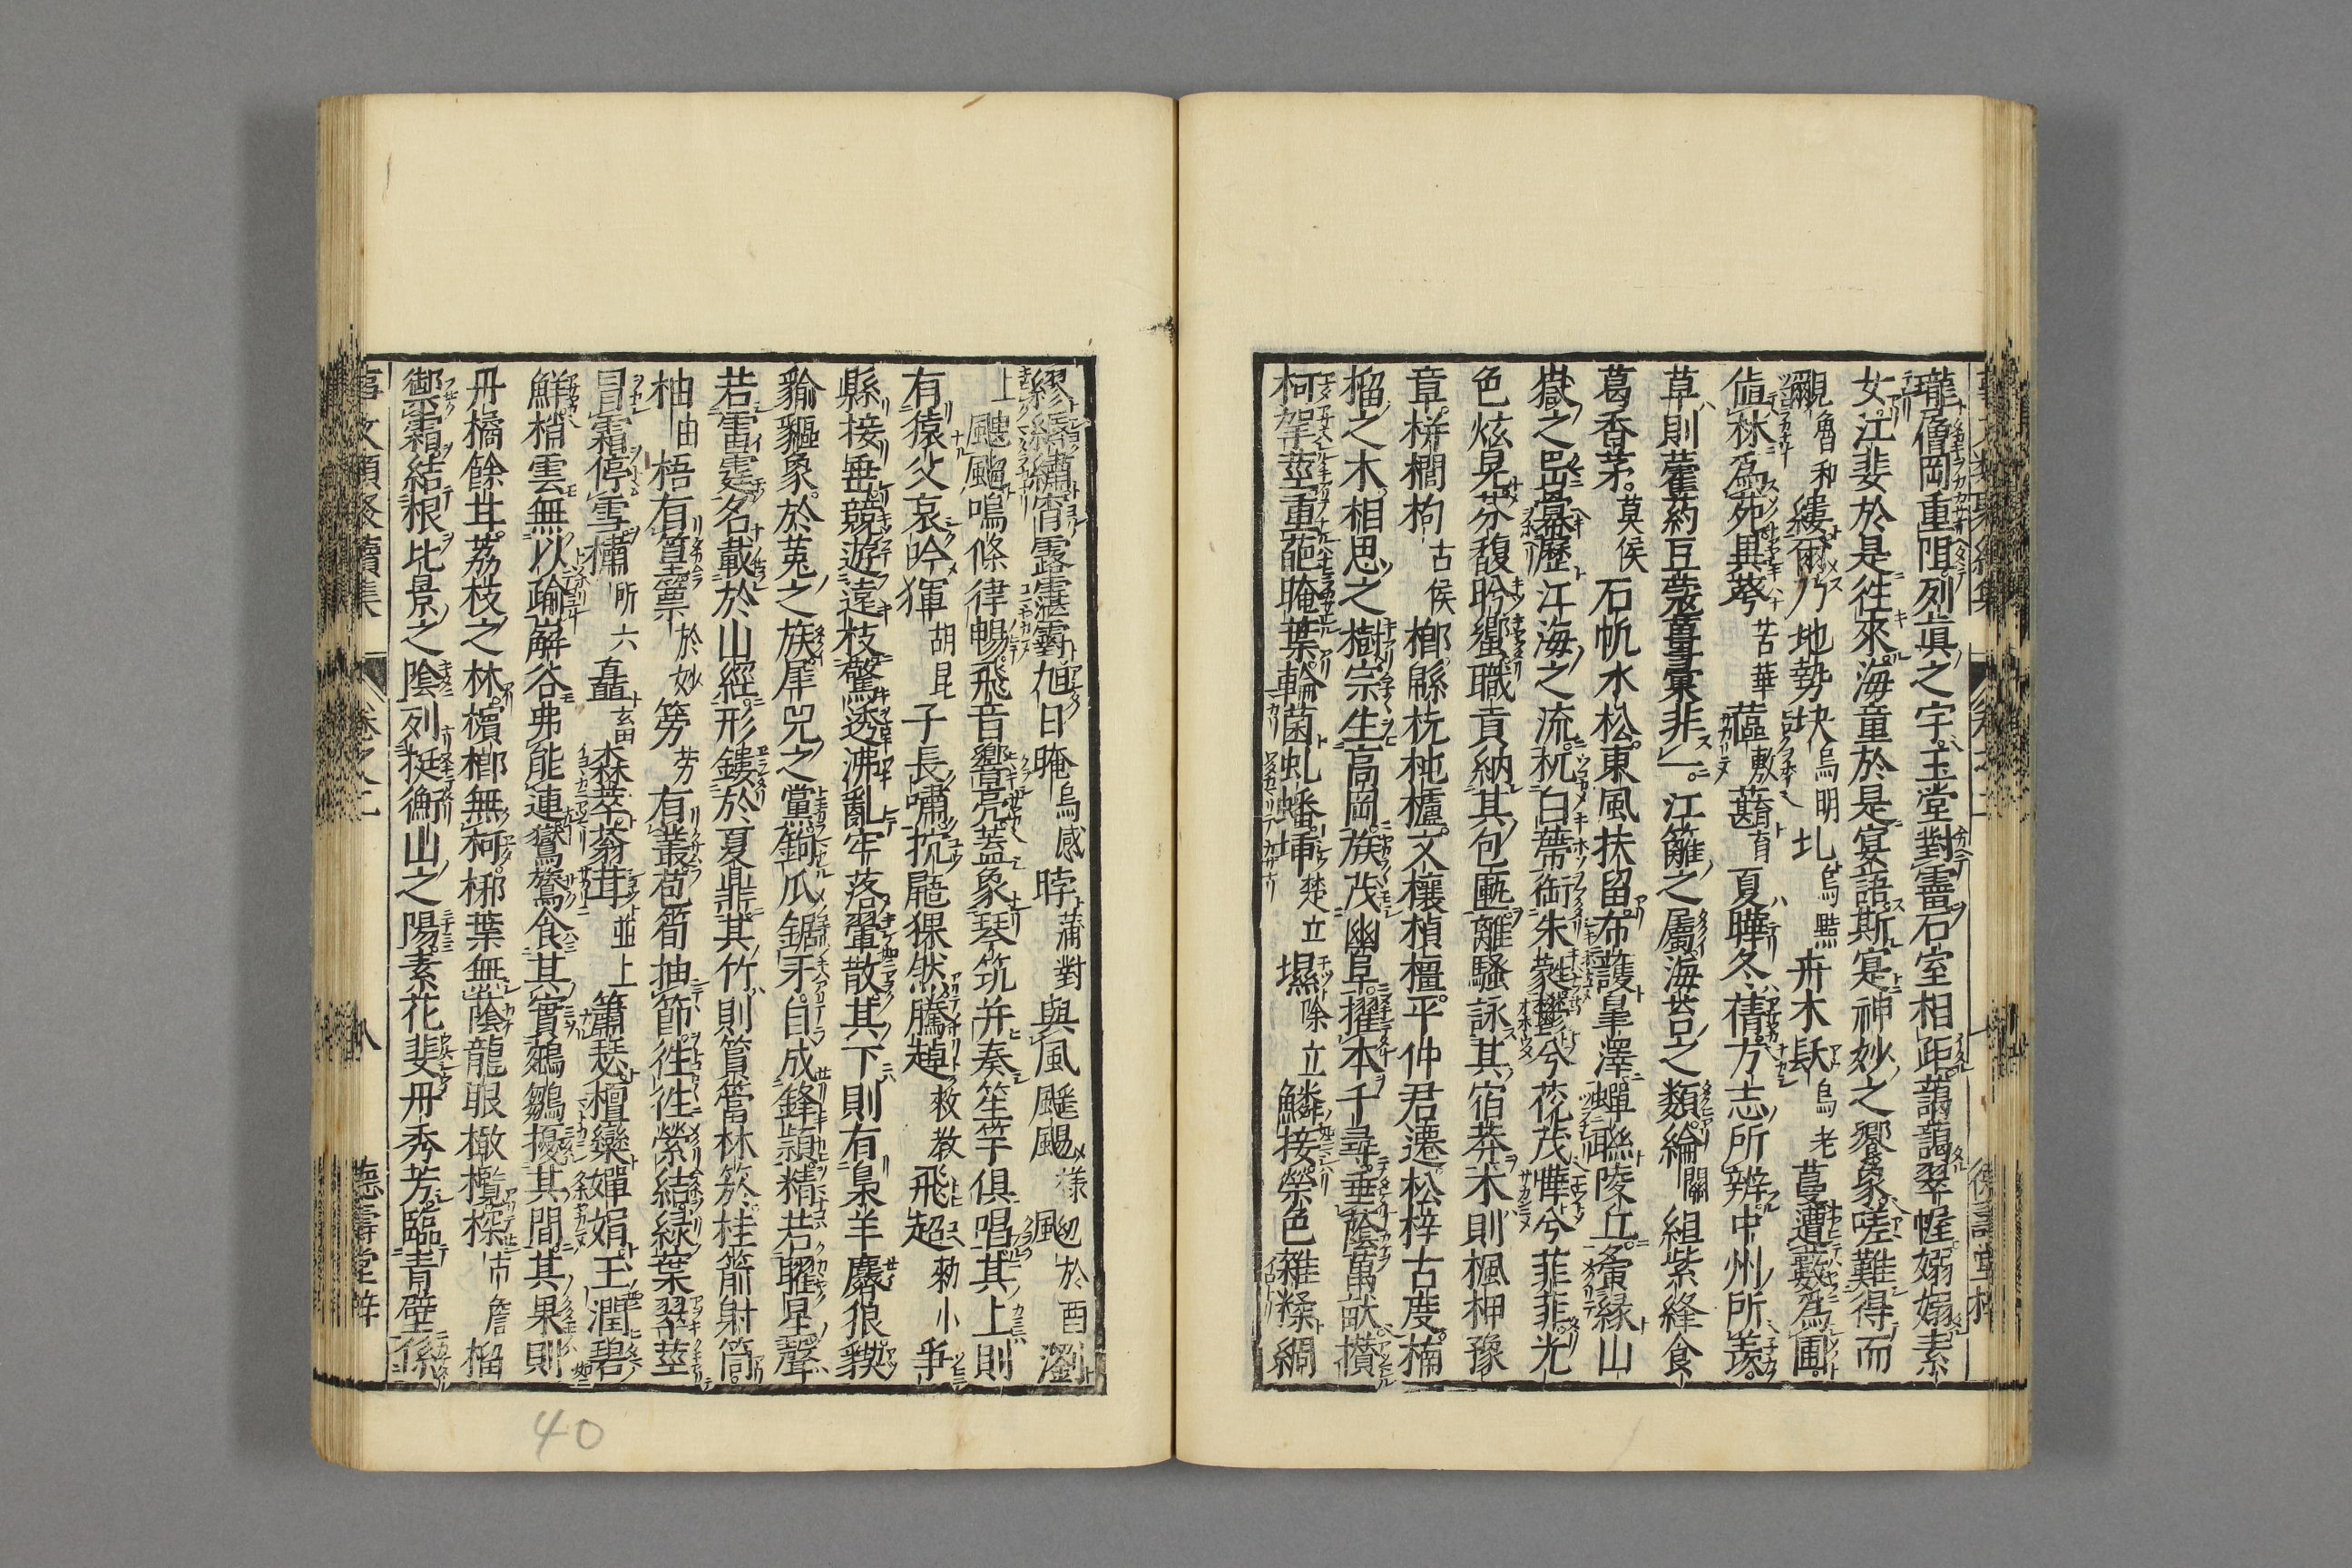 瓏層岡重阻列真之宇玉堂對霤石室相距藹藹翠幄嫋嫋素
女江婓於是往來海童於是宴語斯寔神妙之響象嗟難得而
覼魯和縷爾乃地勢坱烏朗圠烏黠卉木镺烏老蔓遭藪為圃
値林為苑異荂苦華蘛敷蘛育夏曄冬蒨方志所辨中州所羨
草則藿蒳豆蔻薑彙非一江蘺之屬海苔之類綸關組紫絳食
葛香茅莫侯石帆水松東風扶留布護皐澤蟬聯陵丘夤緣山
嶽之岊冪歷江海之流扤白蔕銜朱蕤鬱兮茂曄兮菲菲光
色炫晃芬馥肸蠁職貢納其包匭離騷詠其宿莽木則楓柙豫
章栟櫚枸古侯榔緜杬杶櫨文欀楨橿平仲君遷松梓古度楠
榴之木相思之樹宗生高岡族茂幽阜擢本千尋垂蔭萬畝攢
柯拏莖重葩晻葉輪菌虬蟠楚立除立鱗接榮色雜糅綢
繆縟繡宵露霮䨴旭日晻烏感㫲蒲對與風飖颺樣颲於酉瀏
上颼飀鳴條律暢飛音響亮蓋象琴筑并奏笙竽俱唱其上則
有猿父哀吟獋胡昆子長嘯狖鼯猓然騰趠敕教飛超勑小爭
縣接垂競遊遠枝驚透沸亂牢落翬散其下則有梟羊麡狼猰
貐貙象於菟之族犀兕之黨鉤爪鋸牙自成鋒穎精若曜星聲
若雷霆名載於山經形鏤於夏鼎其竹則篔簹林箊桂箭射筒
柚由梧有篁篻於妙簩芳有叢苞筍抽節往往縈結綠葉翠莖
冒霜停雪橚所六矗丑畜森萃蓊茸並上簫瑟檀欒嬋娟玉潤碧
鮮梢雲無以踰嶰谷弗能連鸑鷟食其實鵷鶵擾其間其果則
丹橘餘甘荔枝之林檳榔無柯椰葉無蔭龍眼橄欖棎市詹榴
禦霜結根比景之陰列挺衡山之陽素花斐丹秀芳臨青壁係
事文類聚續集 卷之二 八 德壽堂梓